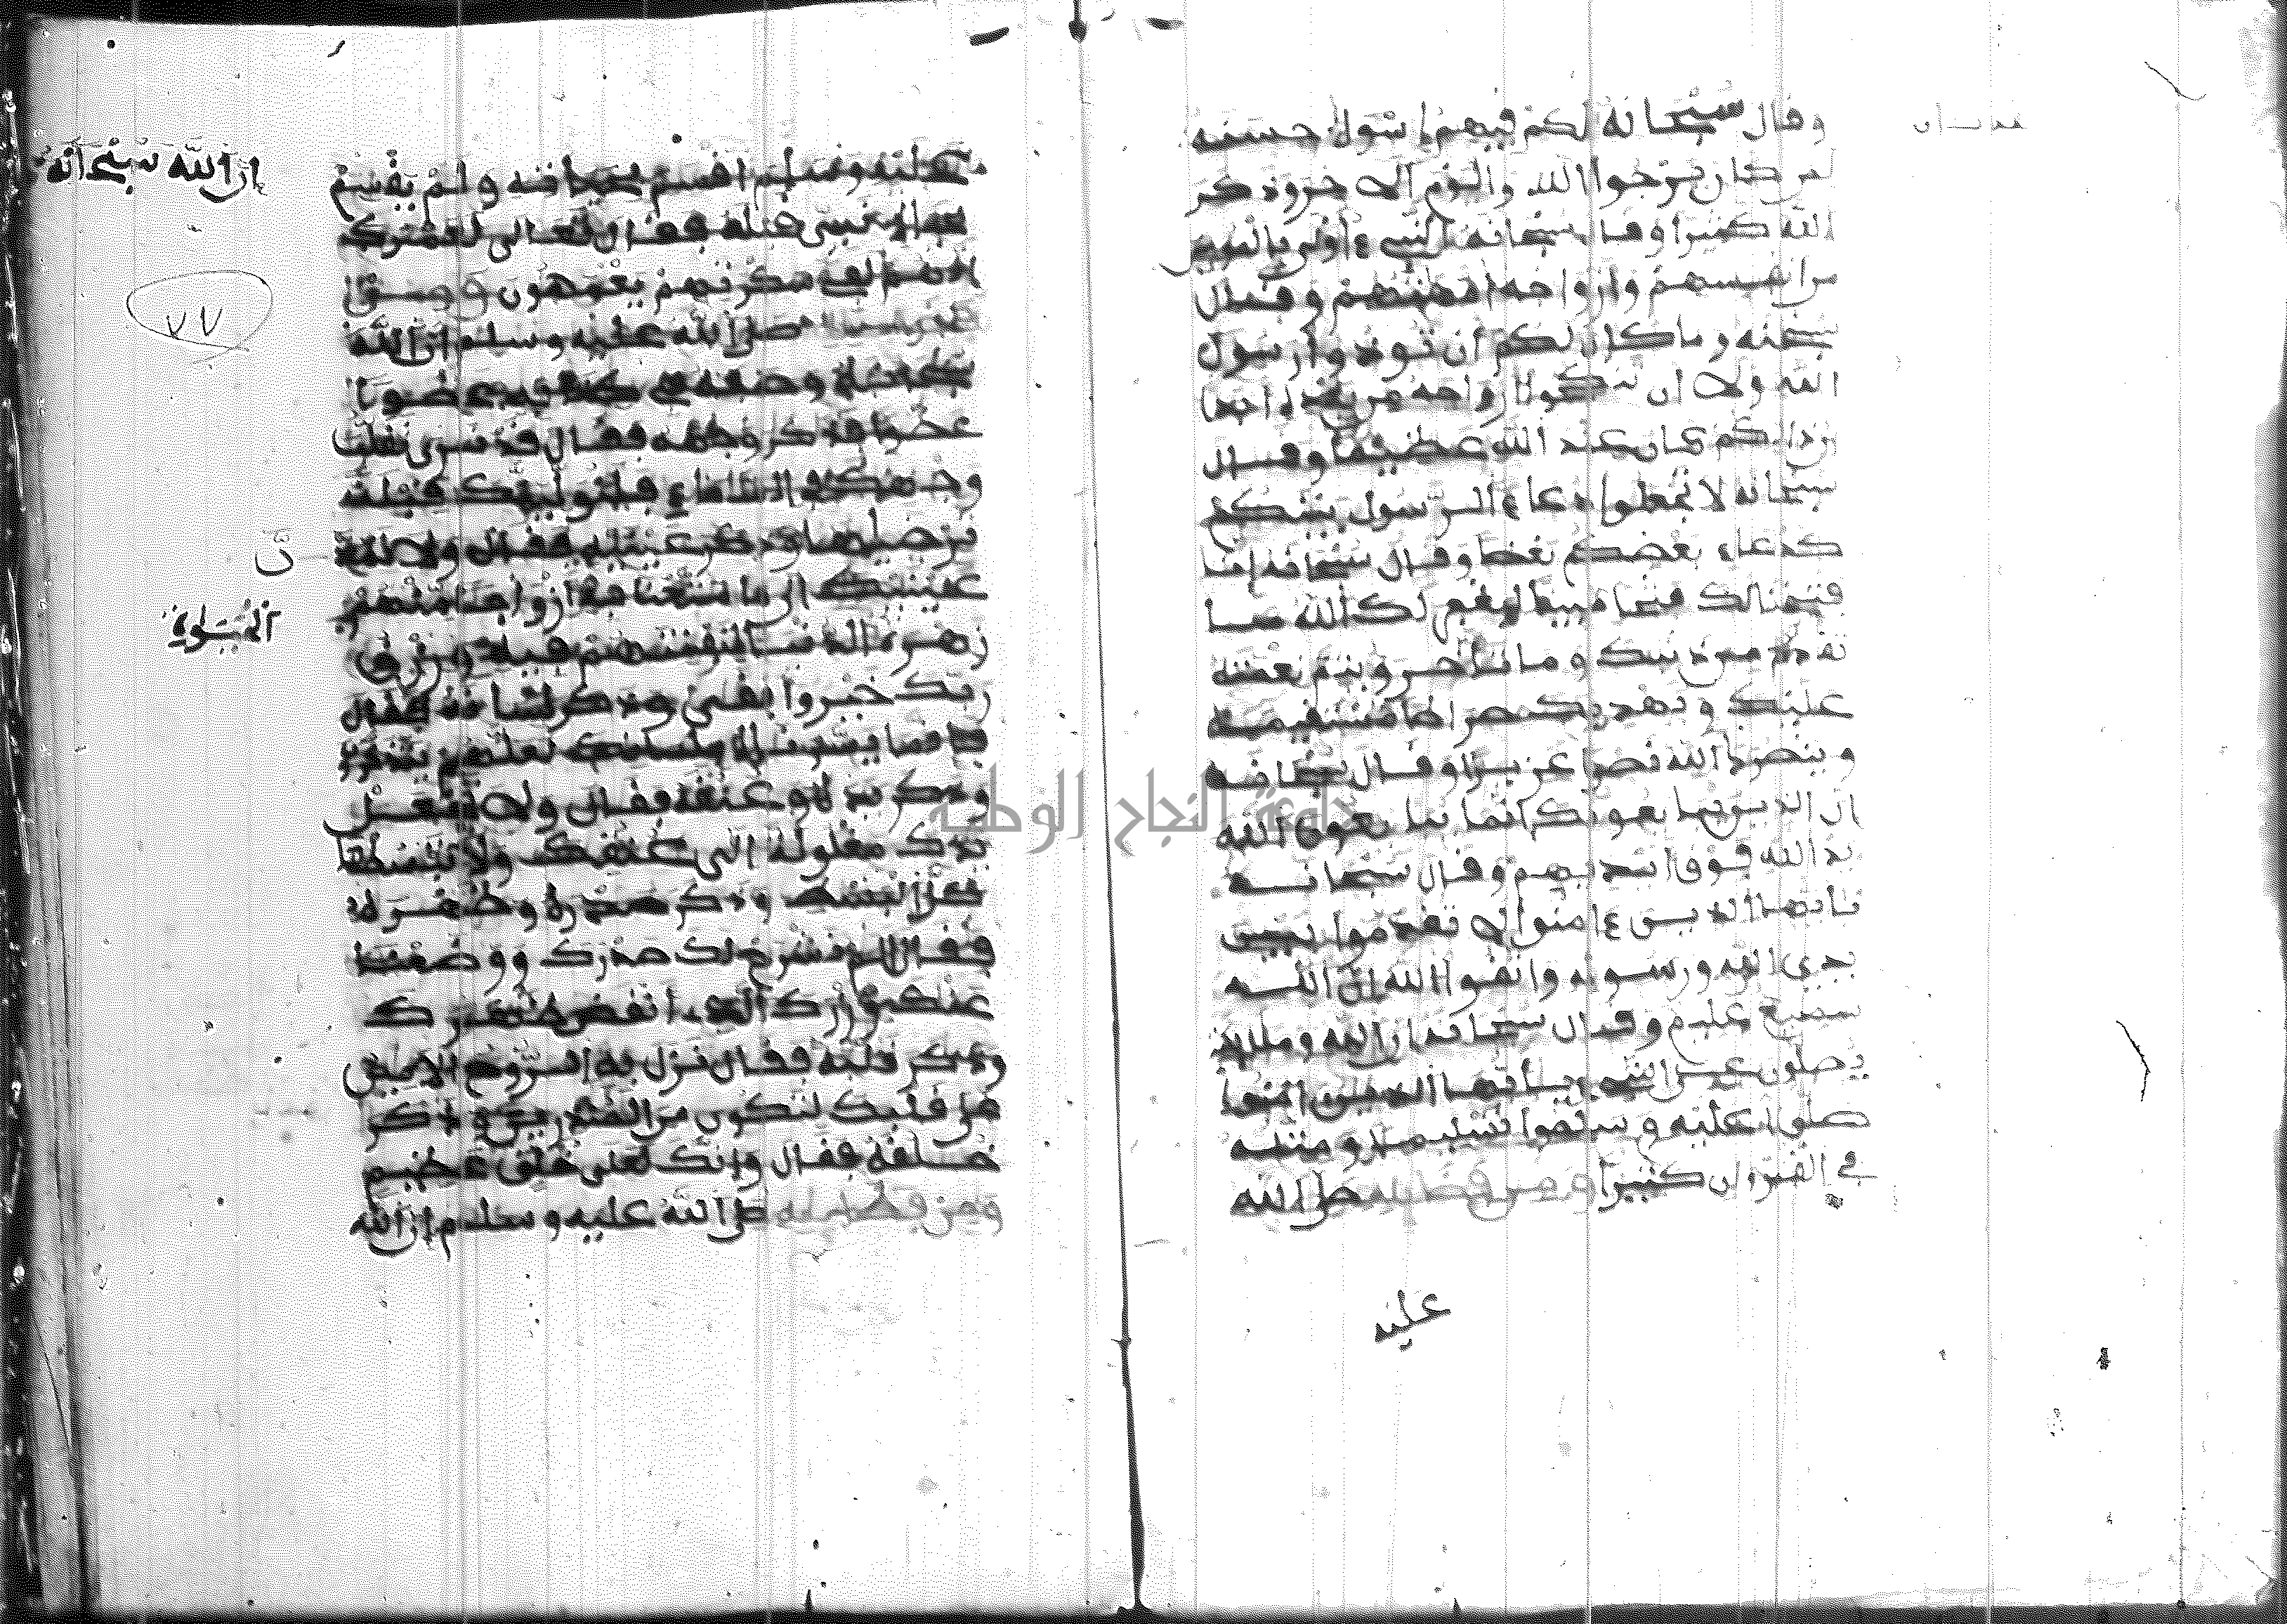 وقال سبحانه لكم فيهم إسوة حسنة
لمن كان يرجوا الله واليوم الاخر وذكر
الله كثيرا وقال سبحانه النبيء أولى بالمومنين
من انفسهم وازواجه امهتهم وقال
سبحنه وما كان لكم ان توذوا رسول
الله ولا ان تنكحوا ازواجه من بعده ابدا
ان ذالكم كان عند الله عظيما وقال
سبحانه لا تجعلوا دعاء الرسول بينكم
كدعاء بعضكم بعضا وقال سبحانه إنا
فتحنا لك فتحا مبينا ليغفر لك الله ما
تقدم من ذنبك وما تأخر ويتم نعمته
عليك ويهديك صراطا مستقيما
وينصرك الله نصرا عزيزا وقال سبحانه
ان الذين يبايعونك انما يبايعون الله
يد الله فوق ايديهم وقال سبحانه
يايها الذين ءامنوا لا تقدموا بين
يدي الله ورسوله واتقوا الله ان الله
سميع عليم وقال سبحانه ان الله وملائكته
يصلون على النبيء يايها الذين امنوا
صلوا عليه وسلموا تسليما ومثله
في القرءان كثيرا ومن فضايله صلى الله
عليه
عليه وسلم اقسم بحياته ولم يقسم
بحيا نبي قبله فقال تعالى لعمرك
انهم لفي سكرتهم يعمهون ومن
فضايله صلى الله عليه وسلم ان الله
سبحانه وصفه في كتابه عضوا
عضوا فذكر وجهه فقال قد نرى تقلب
وجهك في السماء فلنولينك قبلة
ترضيها وذكر عينيه فقال ولا تمدن
عينيك الى ما متعنا به ازواجا منهم
زهرة الدنيا لنفتنهم فيه ورزق
ربك خير وابقى وذكر لسانه فقال
فإنما يسرناه بلسانك لعلهم يتذكرون
وذكر يده وعنقه فقال ولا تجعل
يدك مغلولة الى عنقك ولا تبسطها
كل البسط وذكر صدره وظهره
فقال الم نشرح لك صدرك ووضعنا
عنك وزرك الذي انقض ظهرك
وذكر قلبه فقال نزل به الروح الامين
على قلبك لتكون من المنذرين وذكر
خلقه فقال وانك لعلى خلق عظيم
ومن فضايله صلى الله عليه وسلم ان الله
ان الله سبحانه
٧٧
نّ
جامعة النجاح الوطنية